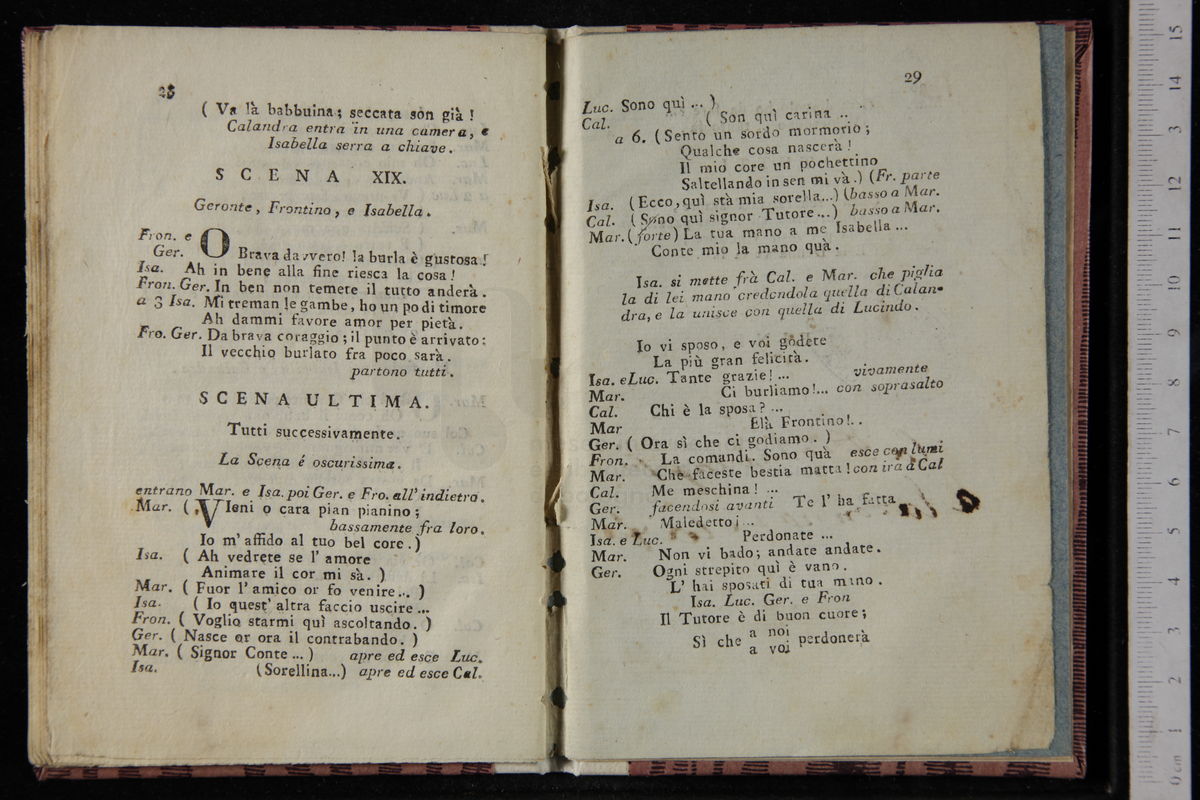 28
( Va là babbuina; seccata son già !
Calandra entra in una camera, e
Isabella serra a chiave.
SCENA XIX.
Geronte, Frontino, e Isabella.
Fron. e
Ger. O Brava davvero! la burla è gustosa!
Isa. Ah in bene alla fine riesca la cosa!
Fron. Ger. In ben non temete il tutto anderà.
a 3 Isa. Mi treman le gambe, ho un po di timore
Ah dammi favore amor per pietà.
Fro. Ger. Da brava coraggio; il punto è arrivato:
Il vecchio burlato fra poco sarà.
partono tutti.
SCENA ULTIMA.
Tutti successivamente.
La Scena é oscurissima.
entrano Mar. e Isa. poi Ger. e Fro. all' indietro.
Mar. ( VIeni o cara pian pianino;
bassamente fra loro.
Io m' affido al tuo bel core.)
Isa. ( Ah vedrete se l' amore
Animare il cor mi sà. )
Mar. ( Fuor l' amico or fo venire... )
Isa. ( Io quest' altra faccio uscire...
Fron. ( Voglio starmi quì ascoltando. )
Ger. ( Nasce or ora il contrabando. )
Mar. ( Signor Conte... ) apre ed esce Luc.
Isa. (Sorellina...) apre ed esce Cal.
29
Luc. Sono quì ... )
Cal. ( Son quì carina ..
a 6. (Sento un sordo mormorio;
Qualche cosa nascerà!
Il mio core un pochettino
Saltellando in sen mi và.) (Fr. parte
Isa. (Ecco, quì stà mia sorella...) (basso a Mar.
Cal. (Sono quì signor Tutore...) basso a Mar.
Mar. (forte) La tua mano a me Isabella ...
Conte mio la mano quà.
Isa. si mette frà Cal. e Mar. che piglia
la di lei mano credendola quella di Calan-
dra, e la unisce con quella di Lucindo.
Io vi sposo, e voi godete
La più gran felicità.
Isa. e Luc. Tante grazie! ... vivamente
Mar. Ci burliamo!... con soprasalto
Cal. Chi è la sposa? ...
Mar Elà Frontino!..
Ger. ( Ora sì che ci godiamo. )
Fron. La comandi. Sono quà esce con lumi
Mar. Che faceste bestia matta! con ira a Cal
Cal. Me meschina! ...
Ger. facendosi avanti Te l' ha fatta
Mar. Maledetto; ...
Isa. e Luc. Perdonate ...
Mar. Non vi bado; andate andate.
Ger. Ogni strepito quì è vano.
L' hai sposati di tua mano.
Isa. Luc. Ger. e Fron
Il Tutore è di buon cuore;
Sì che a noi perdonerà
a voi
15
14
13
12
11
10
9
8
7
6
5
4
3
2
1
0 cm